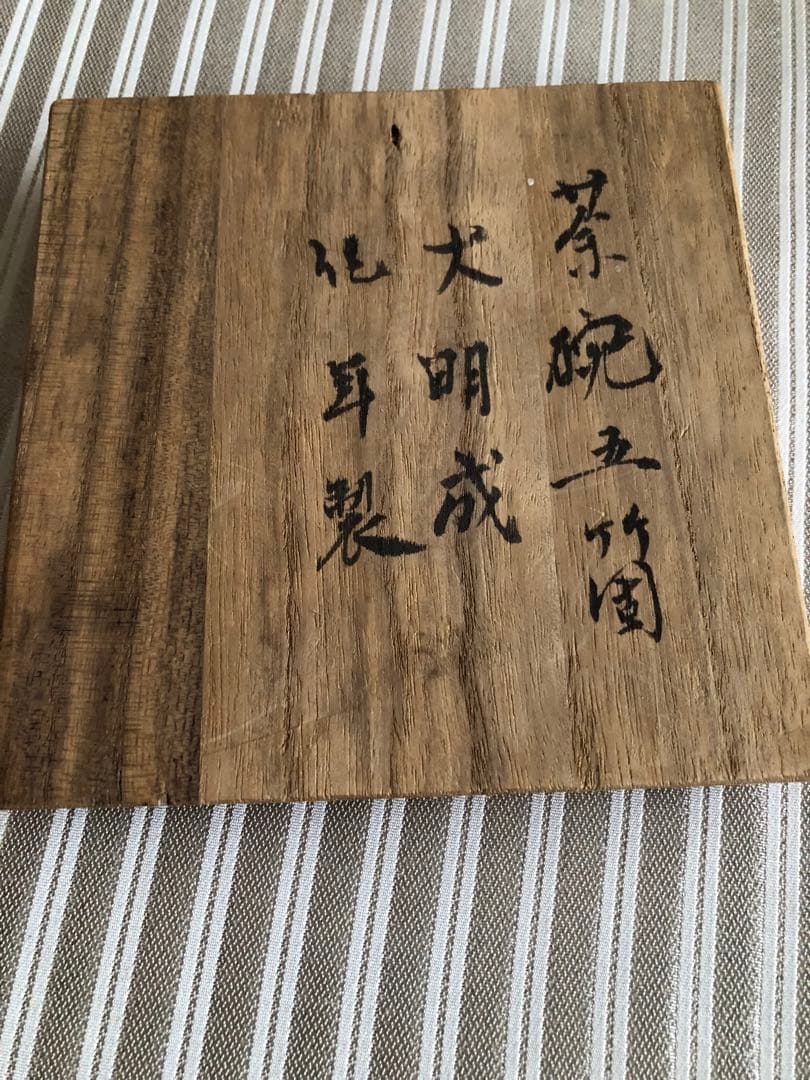 茶碗五箇
大明成
化年製